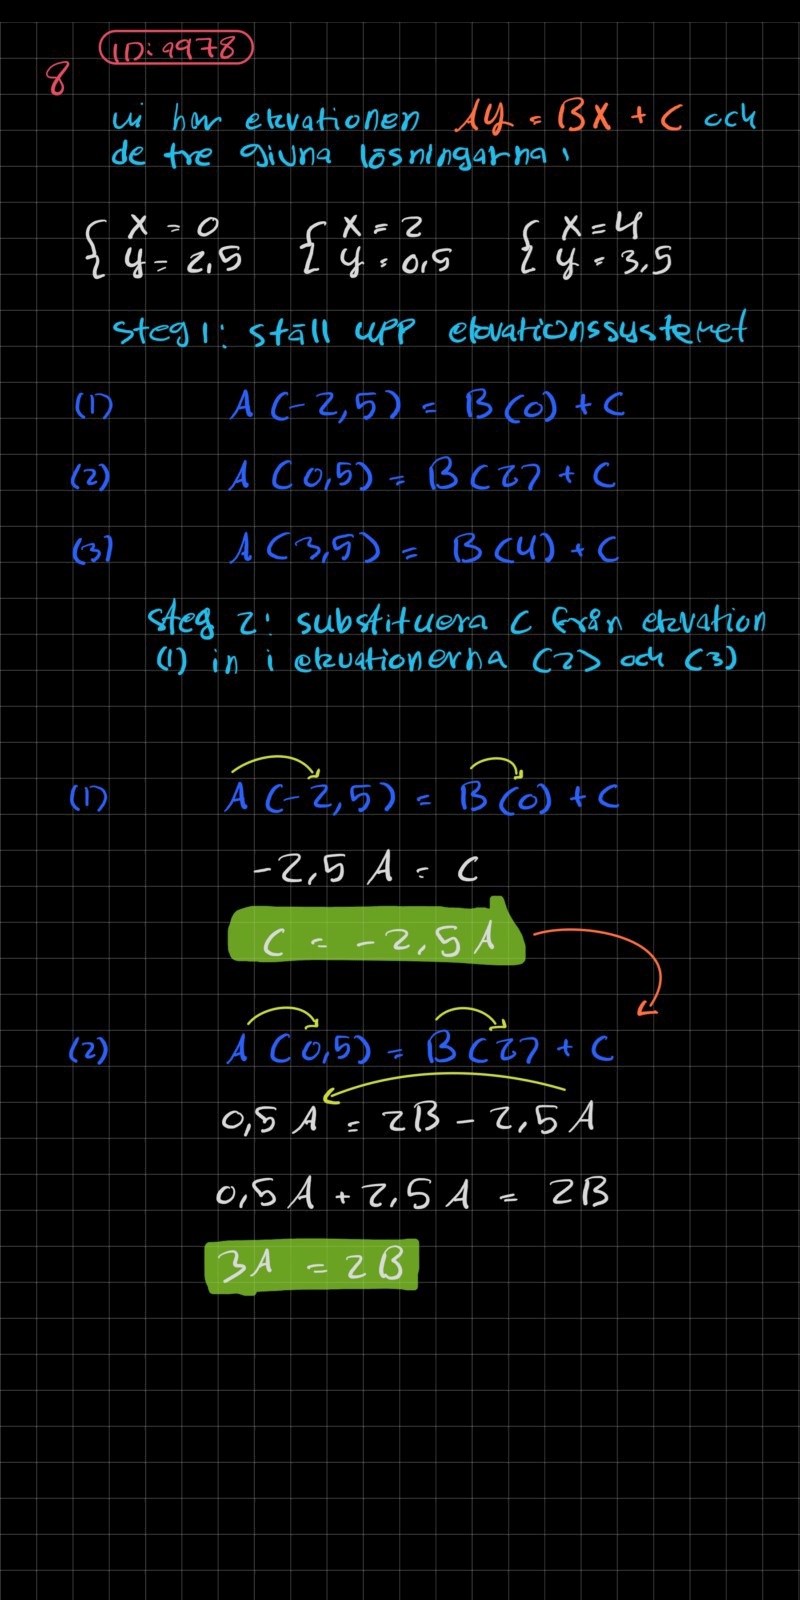 8 ID: 9978
vi har ekvationen AY = BX + C och
de tre givna lösningarna:
{ X = 0 { X = 2 { X = 4
{ Y = 2,5 { Y = 0,5 { Y = 3,5
steg 1: ställ upp ekvationssystemet
(1) A (-2,5) = B(0) + C
(2) A (0,5) = B(2) + C
(3) A (3,5) = B(4) + C
steg 2: substituera C från ekvation
(1) in i ekvationerna (2) och (3)
(1) A (-2,5) = B(0) + C
-2,5 A = C
C = -2,5 A
(2) A (0,5) = B(2) + C
0,5 A = 2B - 2,5 A
0,5 A + 2,5 A = 2B
3A = 2B